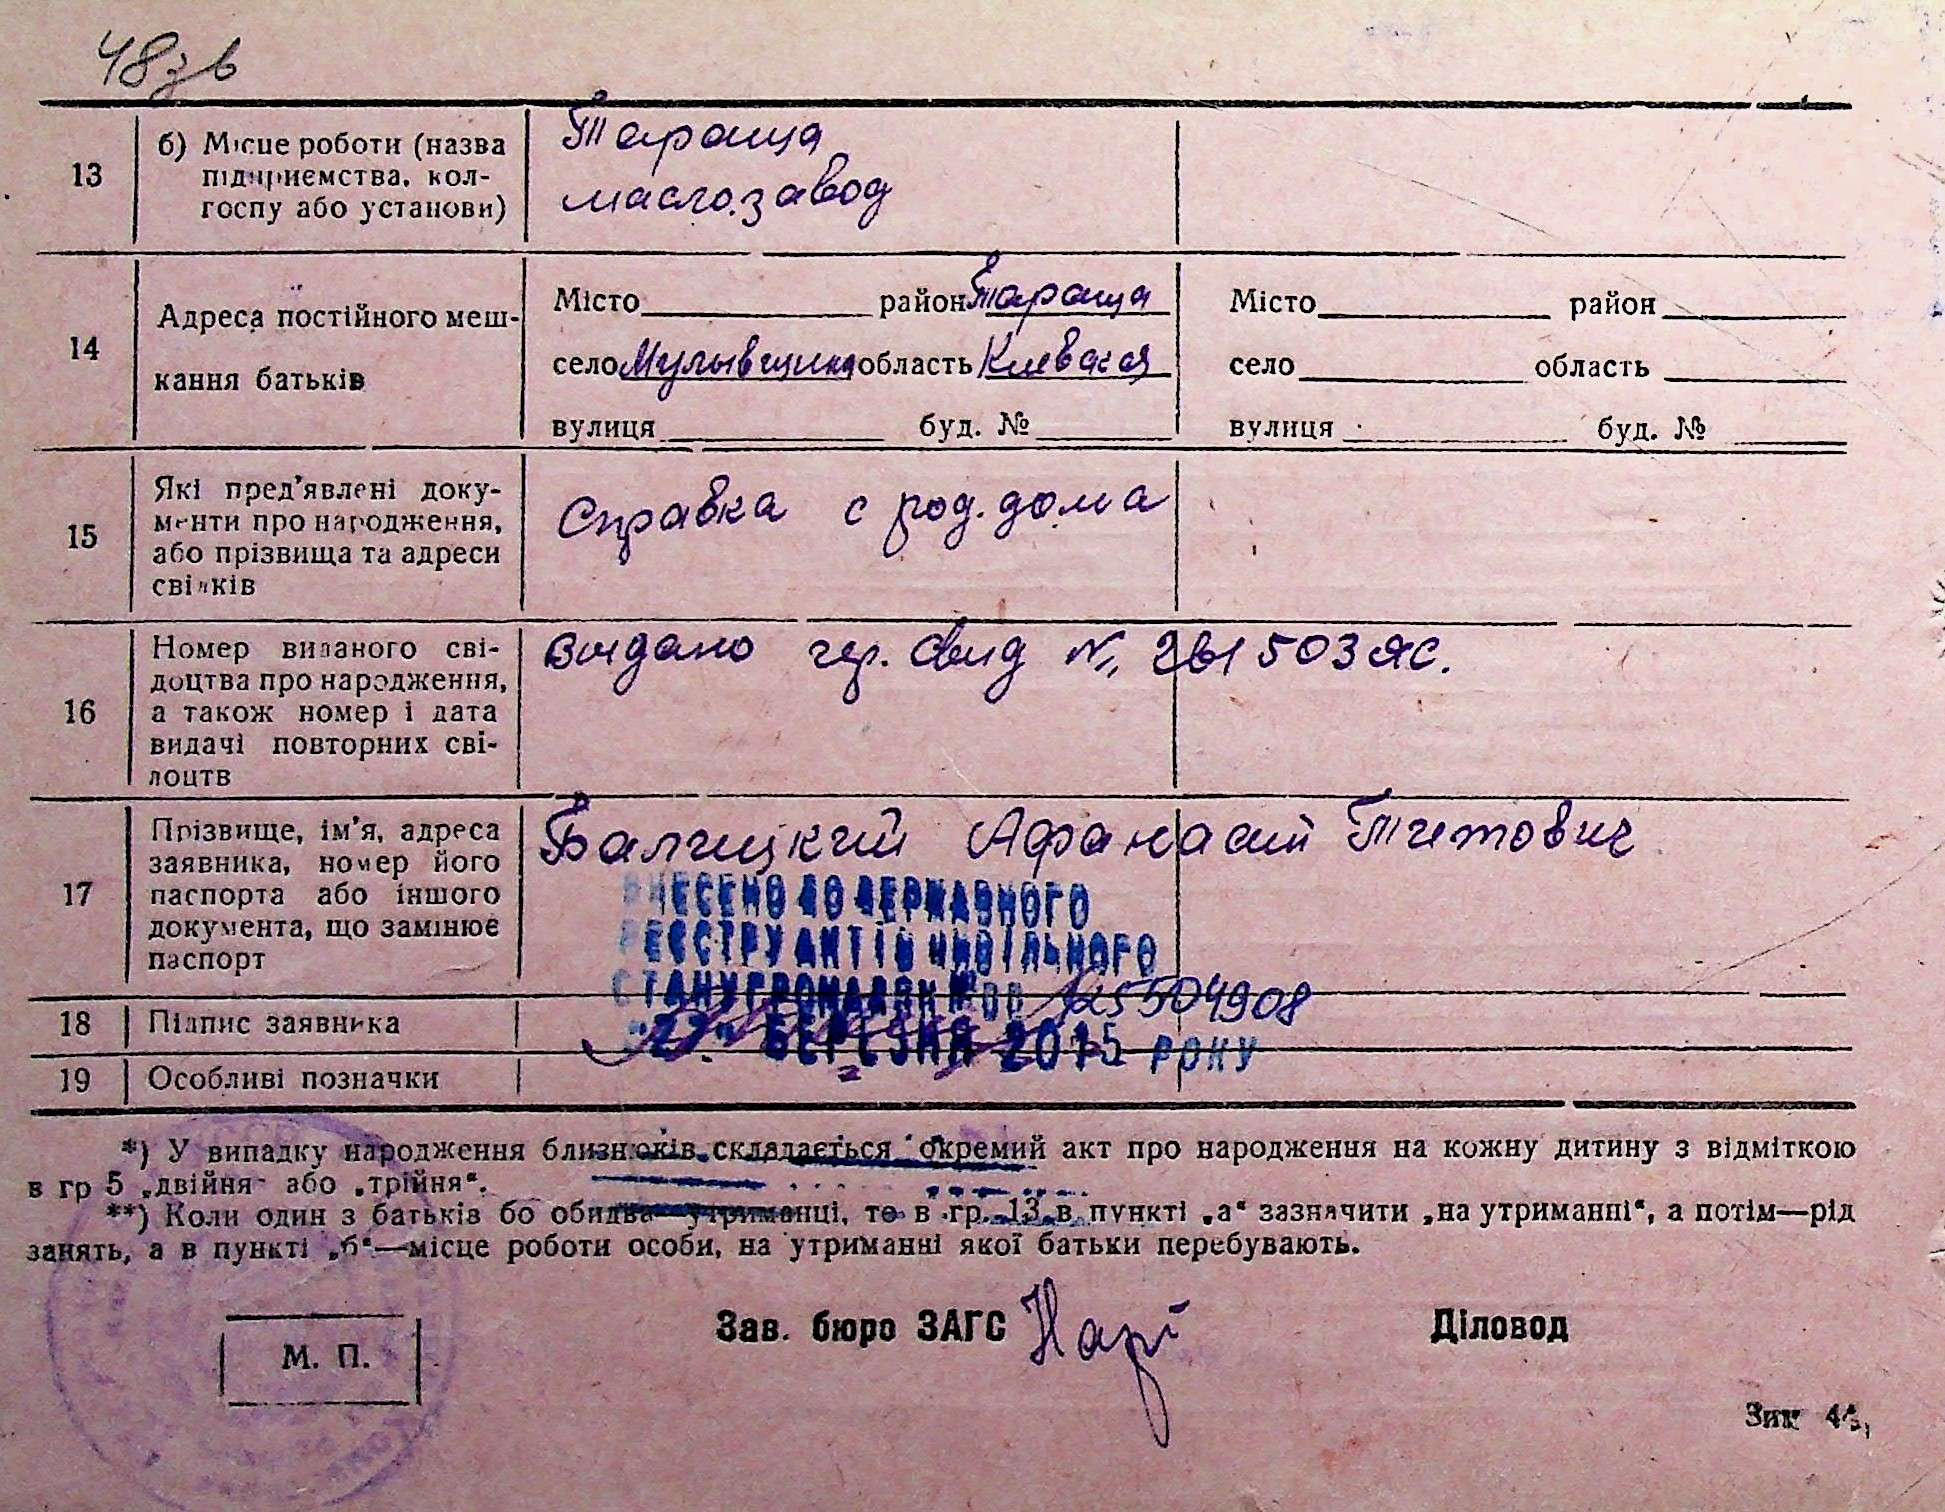 48зв
13
б) Місце роботи (назва
підприємства, кол-
госпу або установи)
Тараща
маслозавод
14
Адреса постійного меш-
кання батьків
Місто район Тараща
село область Киевская
вулиця буд. №
Місто район
село область
вулиця буд. №
15
Які пред'явлені доку-
менти про народження,
або прізвища та адреси
свідків
Справка с род. дома
16
Номер виданого сві-
доцтва про народження,
а також номер і дата
видачі повторних сві-
доцтв
выдано свид №
503 ЯС.
17
Прізвище, ім'я, адреса
заявника, номер його
паспорта або іншого
документа, що замінює
паспорт
Балицкий Афанасий Титович
ВНЕСЕНО ДО ДЕРЖАВНОГО
РЕЄСТРУ АКТІВ ЦИВІЛЬНОГО
СТАНУ ГРОМАДЯН №00 125504908
"27" БЕРЕЗНЯ 2015 РОКУ
18
Підпис заявника
19
Особливі позначки
*) У випадку народження близнюків складається окремий акт про народження на кожну дитину з відміткою
в гр 5 „двійня" або „трійня".
**) Коли один з батьків бо обидва утриманці, то в гр. 13 в пункті „а" зазначити „на утриманні", а потім—рід
занять, а в пункті „б"—місце роботи особи, на утриманні якої батьки перебувають.
М. П.
Зав. бюро ЗАГС
Діловод